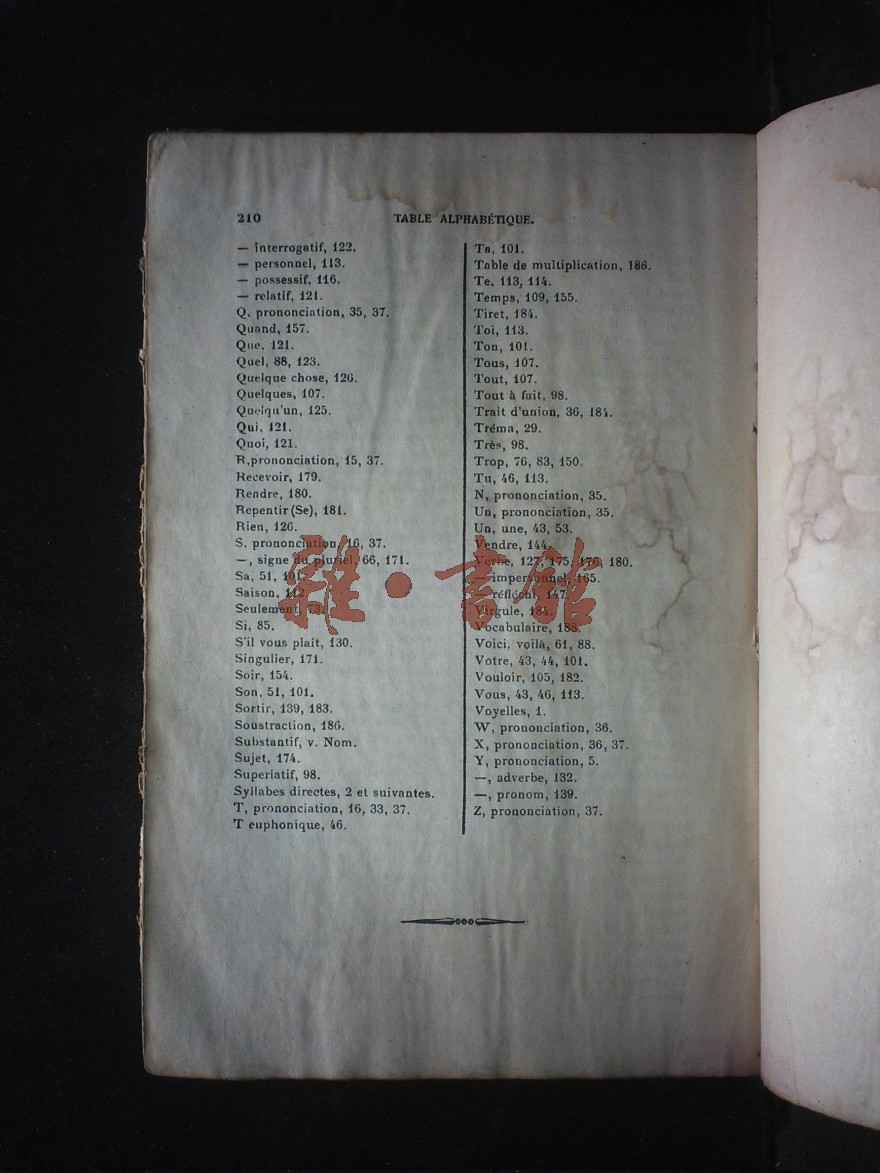 210
TABLE ALPHABÉTIQUE.
— interrogatif, 122.
— personnel, 113.
— possessif, 116.
— relatif, 121.
Q, prononciation, 35, 37.
Quand, 157.
Que, 121.
Quel, 88, 123.
Quelque chose, 126.
Quelques, 107.
Quelqu'un, 125.
Qui, 121.
Quoi, 121.
R, prononciation, 15, 37.
Recevoir, 179.
Rendre, 180.
Repentir (Se), 181.
Rien, 126.
S. prononciation, 16, 37.
—, signe du pluriel, 66, 171.
Sa, 51, 101.
Saison, 112.
Seulement, 73.
Si, 85.
S'il vous plait, 130.
Singulier, 171.
Soir, 154.
Son, 51, 101.
Sortir, 139, 183.
Soustraction, 186.
Substantif, v. Nom.
Sujet, 174.
Superlatif, 98.
Syllabes directes, 2 et suivantes.
T, prononciation, 16, 33, 37.
T euphonique, 46.
Ta, 101.
Table de multiplication, 186.
Te, 113, 114.
Temps, 109, 155.
Tiret, 184.
Toi, 113.
Ton, 101.
Tous, 107.
Tout, 107.
Tout à fait, 98.
Trait d'union, 36, 184.
Tréma, 29.
Très, 98.
Trop, 76, 83, 150.
Tu, 46, 113.
N, prononciation, 35.
Un, prononciation, 35.
Un, une, 43, 53.
Vendre, 144.
Verbe, 127, 175, 176, 180.
— impersonnel, 165.
— réfléchi, 147.
Virgule, 184.
Vocabulaire, 188.
Voici, voilà, 61, 88.
Votre, 43, 44, 101.
Vouloir, 105, 182.
Vous, 43, 46, 113.
Voyelles, 1.
W, prononciation, 36.
X, prononciation, 36, 37.
Y, prononciation, 5.
—, adverbe, 132.
—, pronom, 139.
Z, prononciation, 37.
雅·書館